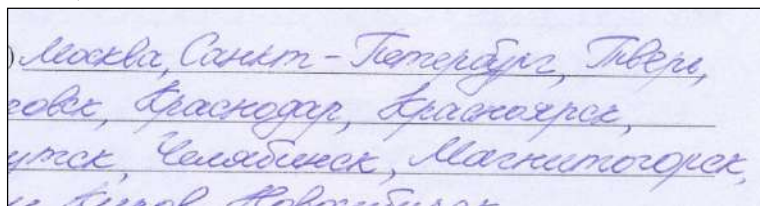 ) Москва, Санкт-Петербург, Тверь,
овск, Краснодар, Красноярск,
утск, Челябинск, Магнитогорск,
Киров, Новосибирск